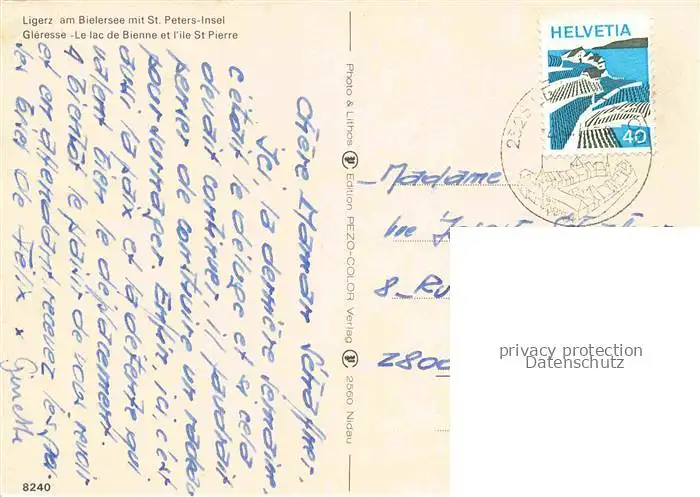 Ligerz am Bielersee mit St. Peters-Insel
Gléresse - Le lac de Bienne et l'ile St Pierre
Chère Maman
Ici, la dernière semaine,
c'était le déluge et si cela
devait continuer, il faudrait
penser de construire un radeau
pour surnager. Enfin, ici, c'est
aussi la paix et la détente qui
valent bien le déplacement.
A bientôt le plaisir de vous revoir
et en attendant recevez les
bises De Felix x Ginette
8240
Photo & Lithos Edition PEZO-COLOR Verlag 2560 Nidau
HELVETIA
40
Madame
8 - Ru
2800
privacy protection
Datenschutz